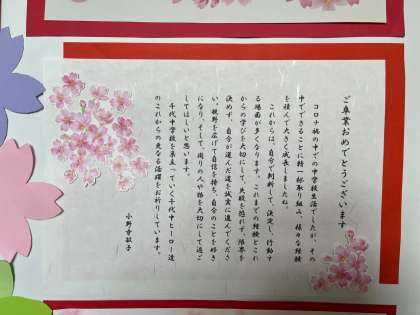 ご卒業おめでとうございます
コロナ禍の中での中学校生活でしたが、その
中でできることに精一杯取り組み、様々な経験
を積んで大きく成長しましたね。
これからは、自分で判断して、決定し、行動す
る場面が多くなります。これまでの経験とこれ
からの学びを大切にして、失敗を恐れず、限界を
決めず、自分が選んだ道を誠実に進んでくださ
い。視野を広げて自信を持ち、自分のことを好き
になり、そして、周りの人や物を大切にして過ご
してほしいと思います。
千代中学校を巣立っていく千代中ヒーロー達
のこれからの更なる活躍をお祈りしています。
小野寺敦子